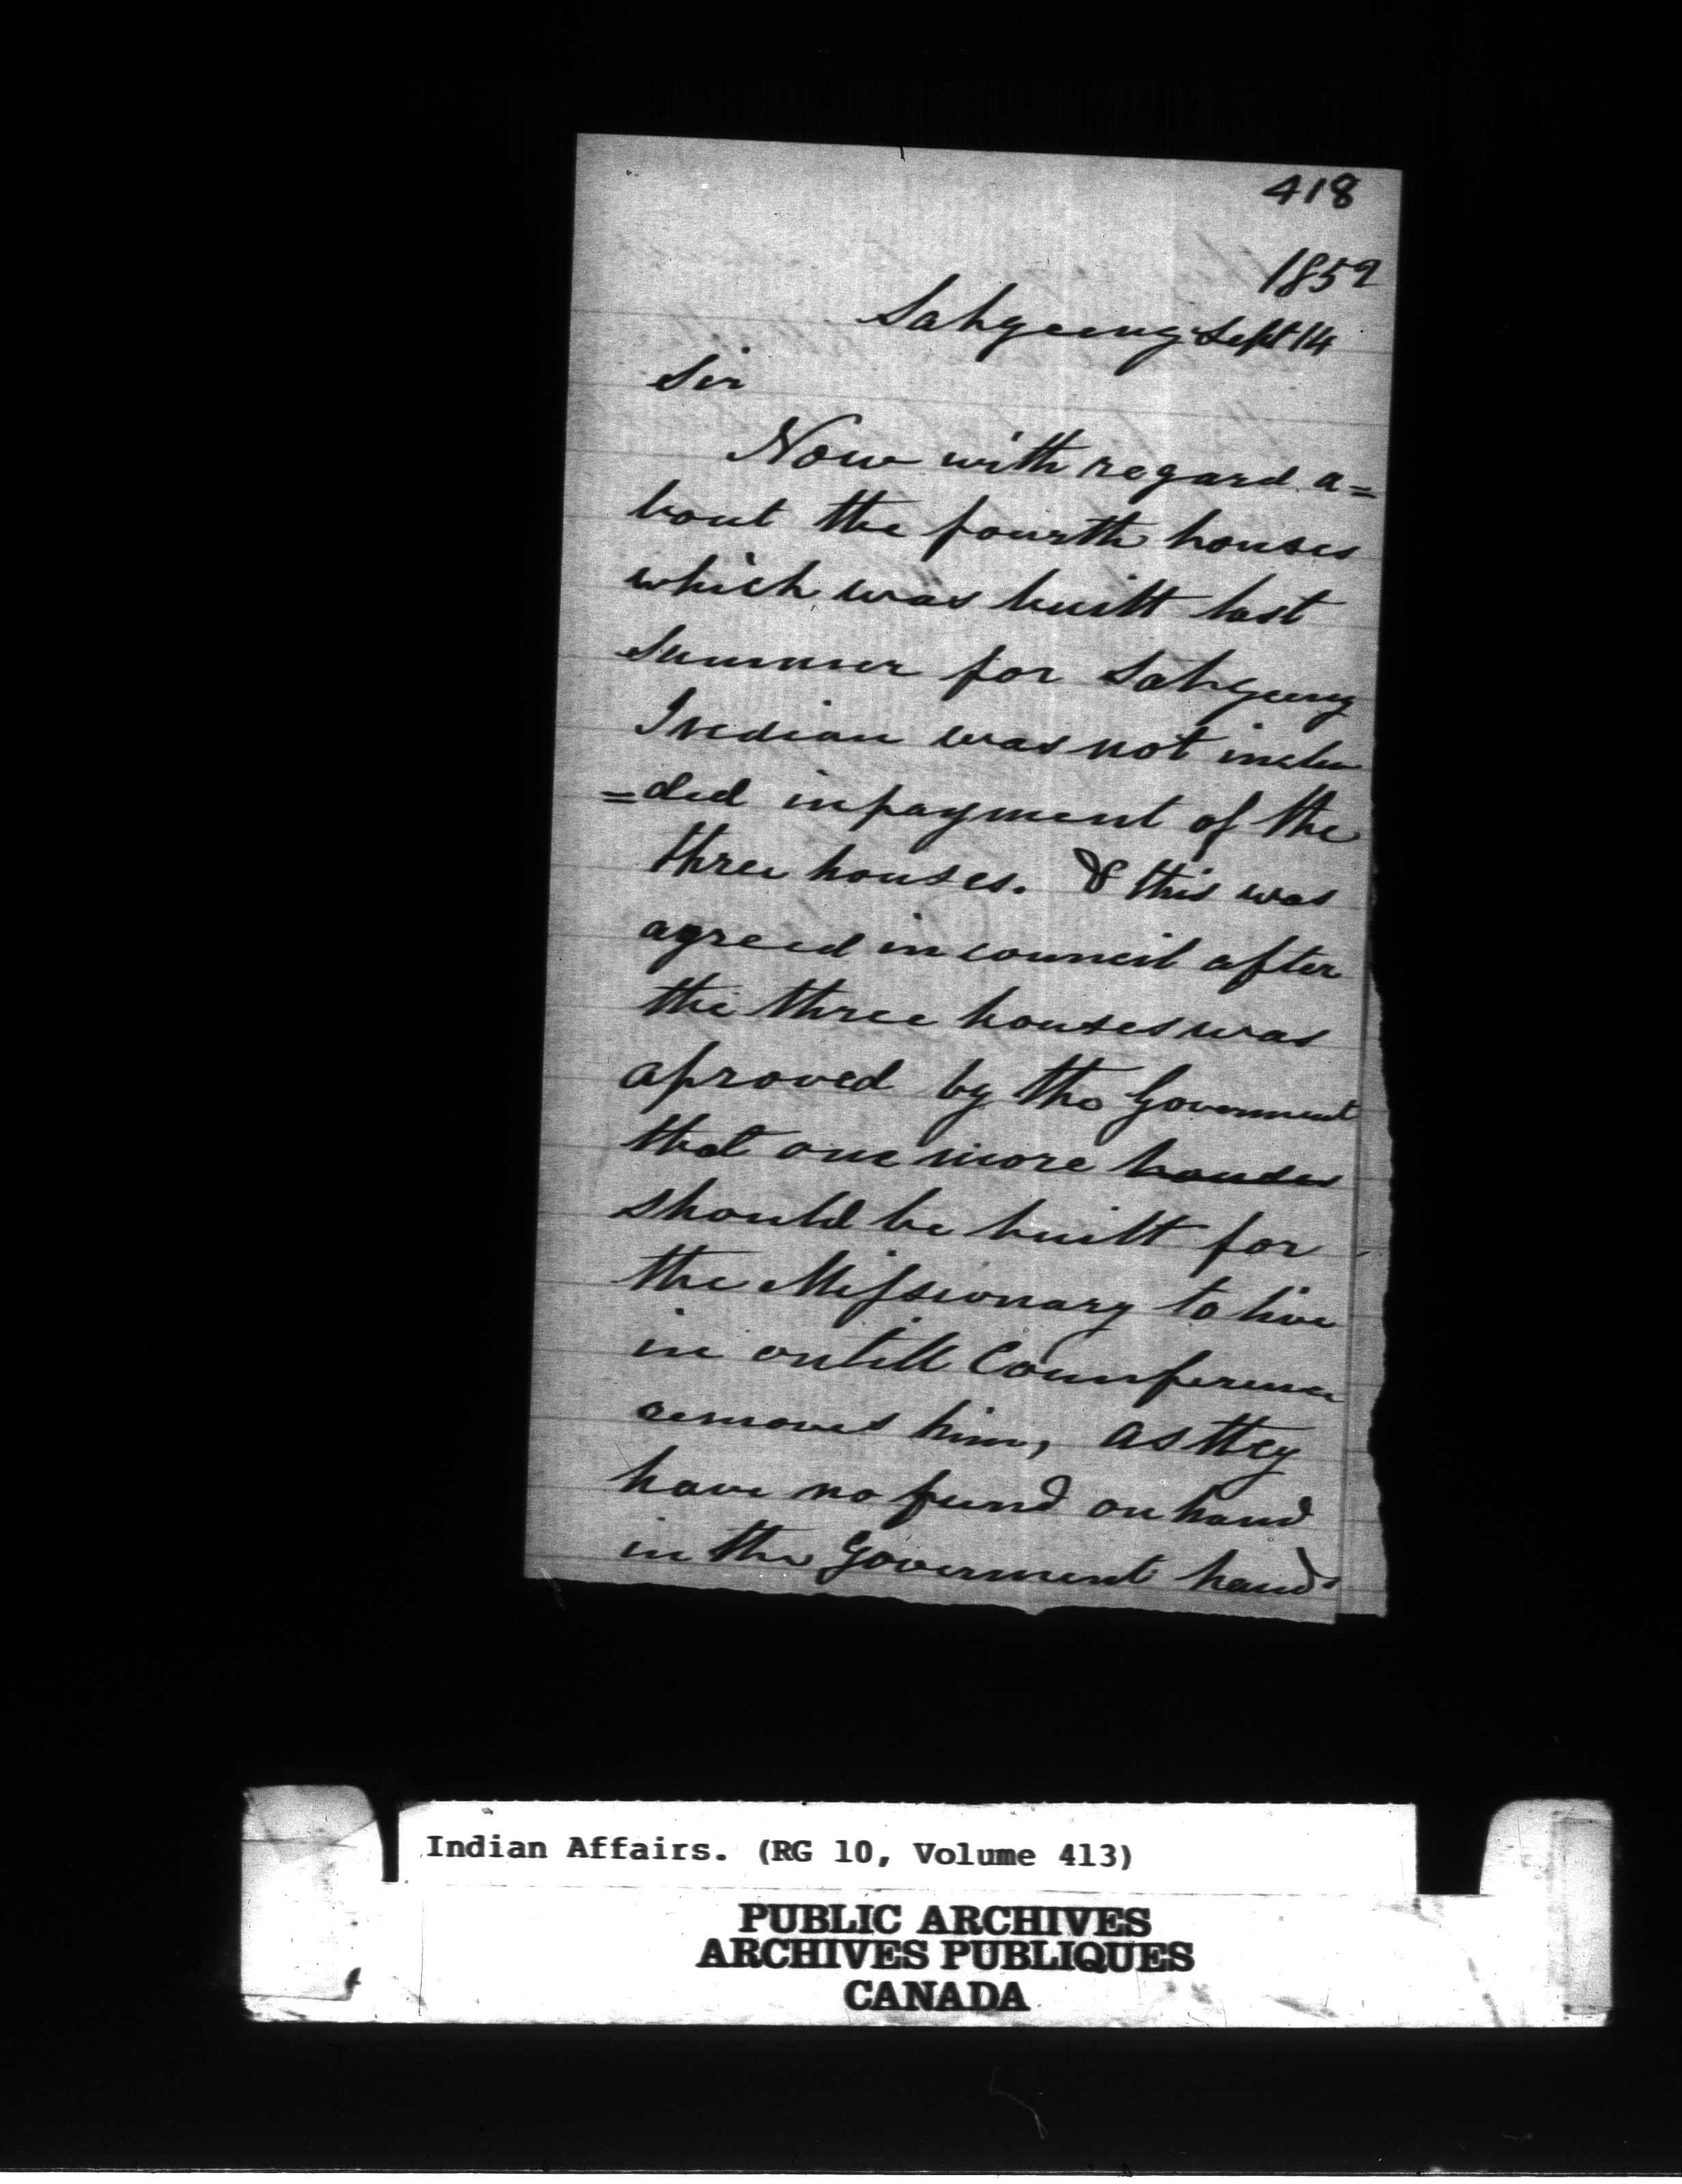 418
1852
Sahgeeng Sept 14
Sir
Now with regard a=
bout the fourth houses
which was built last
summer for Sahgeeng
Indian was not inclu
=ded in payment of the
three houses. & this was
agreed in council after
the three houses was
aproved by the Goverment
that one more houses
should be built for
the Missionary to live
in ontill Counference
removes him, as they
have no fund on hand
in the Goverment hand
Indian Affairs. (RG 10, Volume 413)
PUBLIC ARCHIVES
ARCHIVES PUBLIQUES
CANADA